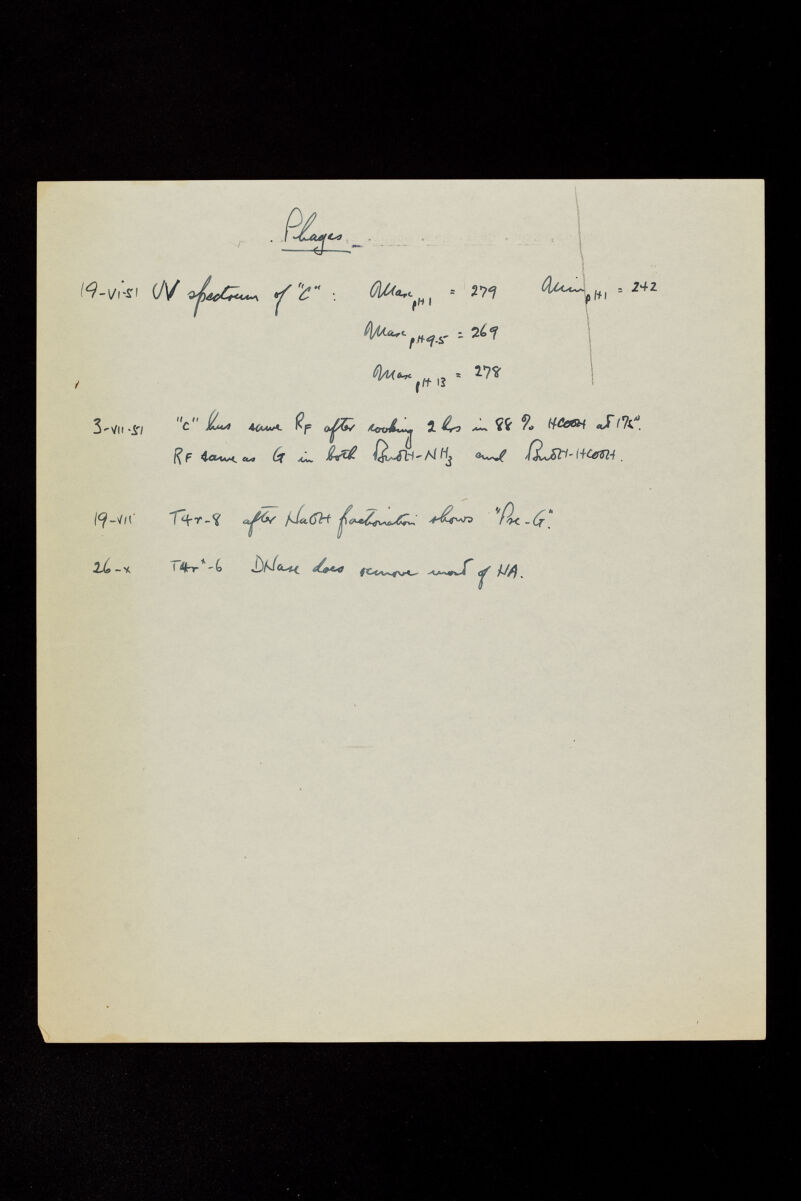 Phages
19-VI-51 UV spectrum of "C" : Max pH 1 = 279 Min pH 1 = 242
Max pH 9.5 = 269
Max pH 13 = 278
3-VII-51 "C" has same RF after cooking 2 hrs in 88 % HCOOH at 175°.
RF same as G in both BuOH-NH3 and BuOH-HCOOH.
19-VII T4r-8 after NaOH fractionation shows "Pre-G".
26-X T4r+-6 DNase does remove most of NA.